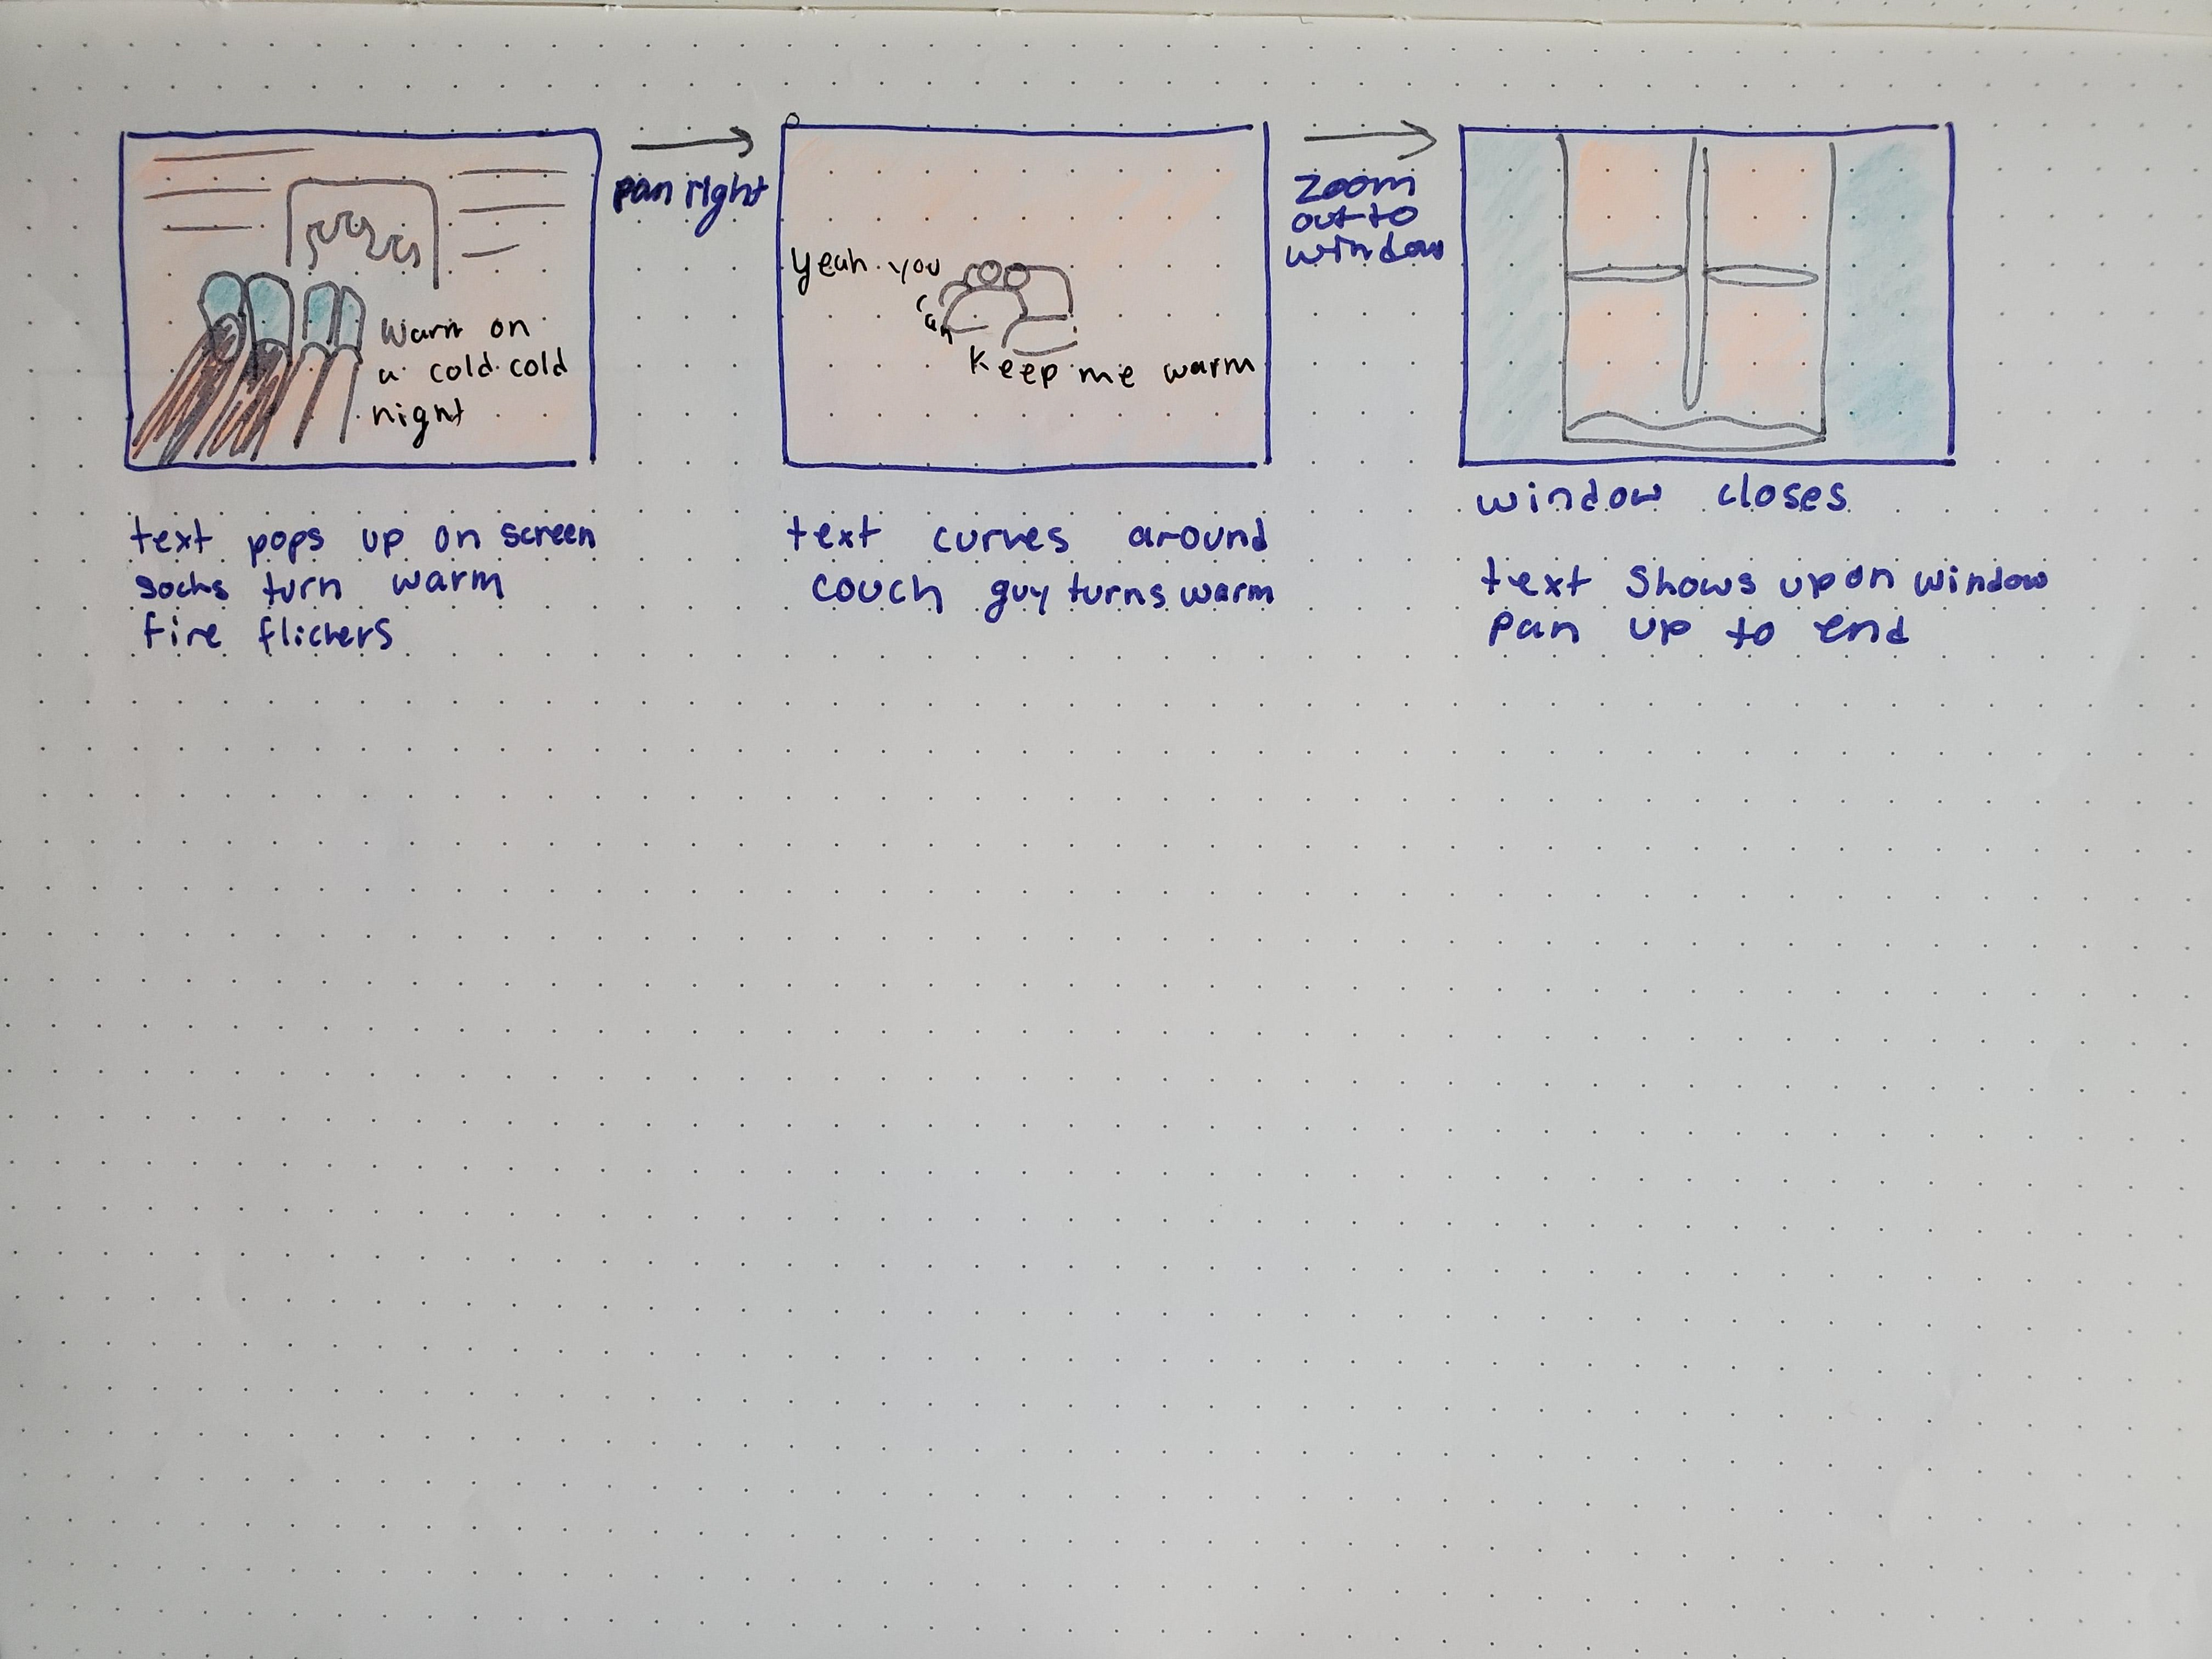 Warm on
a cold cold
night
pan right
Yeah you
can
keep me warm
Zoom
out to
window
text pops up on screen
socks turn warm
fire flickers
text curves around
couch guy turns warm
window closes
text shows up on window
pan up to end